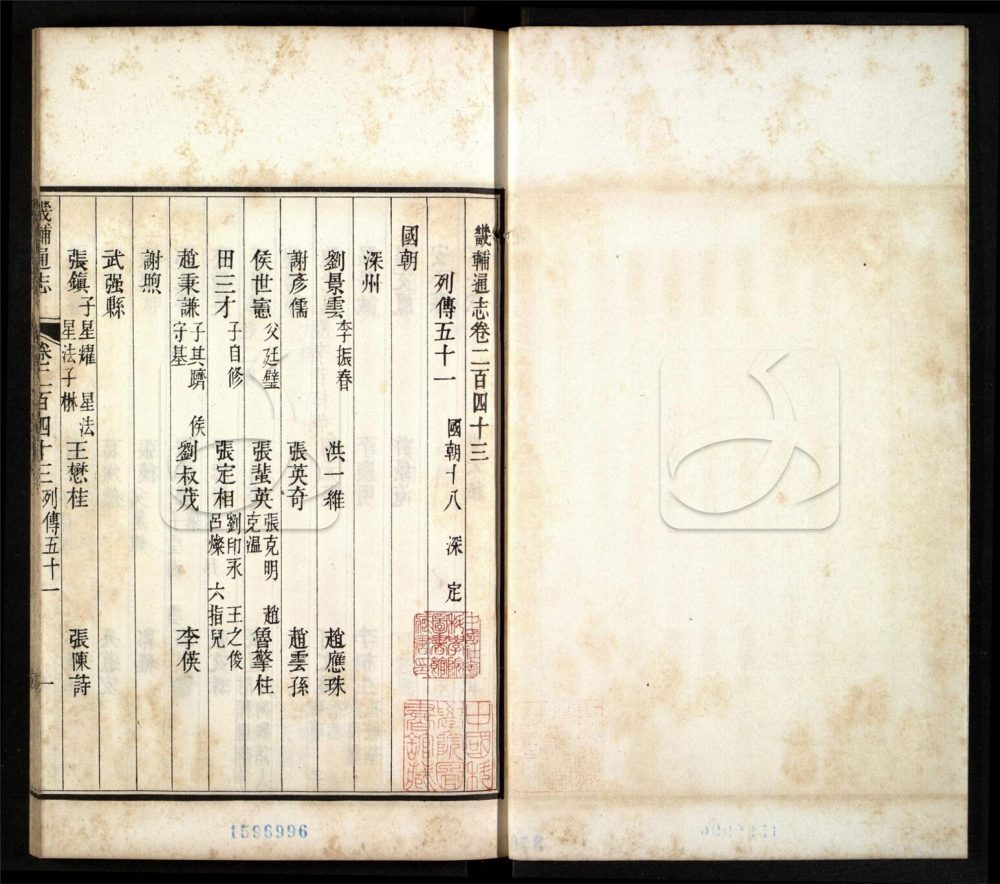 畿輔通志卷二百四十三
列傳五十一 國朝十八 深 定
國朝
深州
劉景雲 李振春 洪一維 趙應珠
謝彥儒 張英奇 趙雲孫
侯世憲 父廷璧 張蜚英 張克明 克溫 趙 魯擎柱
田三才 子自修 張定相 劉印永 呂燦 王之俊 六指兒
趙秉謙 子其躋 守基 侯 劉叔茂 李俠
謝煦
武强縣
張鎮 子星耀 星法 星法子楙 王懋桂 張陳詩
畿輔通志 卷二百四十三 列傳五十一 一
1596996